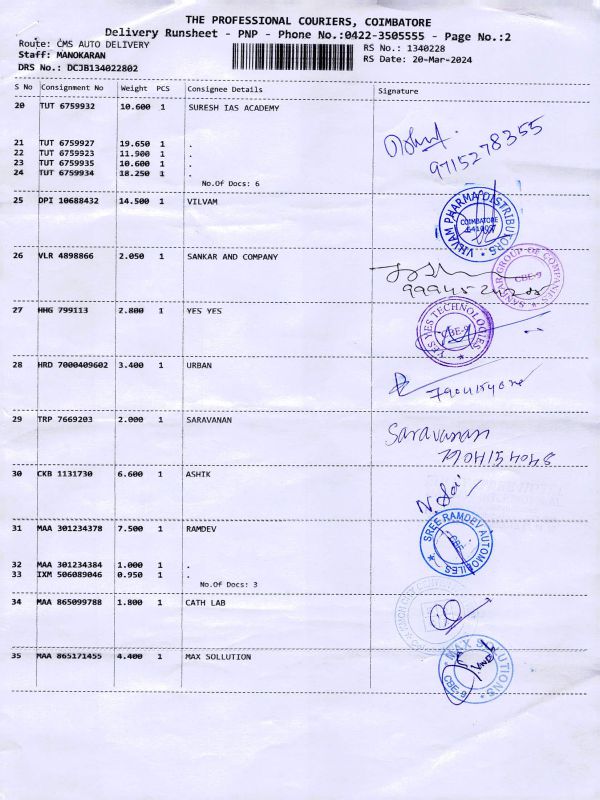 THE PROFESSIONAL COURIERS, COIMBATORE
Delivery Runsheet - PNP - Phone No.:0422-3505555 - Page No.:2
Route: CMS AUTO DELIVERY
RS No.: 1340228
Staff: MANOKARAN
RS Date: 20-Mar-2024
DRS No.: DCJB134022802
S No Consignment No Weight PCS Consignee Details Signature
20 TUT 6759932 10.600 1 SURESH IAS ACADEMY
9715278355
21 TUT 6759927 19.650 1 .
22 TUT 6759923 11.900 1 .
23 TUT 6759935 10.600 1 .
24 TUT 6759934 18.250 1 .
No.Of Docs: 6
25 DPI 10688432 14.500 1 VILVAM
VILVAM PHARMA DISTRIBUTORS
COIMBATORE
26 VLR 4898866 2.050 1 SANKAR AND COMPANY
SANKAR GROUP OF COMPANIES
CBE-9
27 HHG 799113 2.800 1 YES YES
YES YES TECHNOLOGIES
CBE-9
28 HRD 7000409602 3.400 1 URBAN
29 TRP 7669203 2.000 1 SARAVANAN
Saravanan
30 CKB 1131730 6.600 1 ASHIK
31 MAA 301234378 7.500 1 RAMDEV
SREE RAMDEV AUTOMOBILES
CBE
32 MAA 301234384 1.000 1 .
33 IXM 506089046 0.950 1 .
No.Of Docs: 3
34 MAA 865099788 1.800 1 CATH LAB
35 MAA 865171455 4.400 1 MAX SOLLUTION
MAX SOLUTIONS
CBE-9